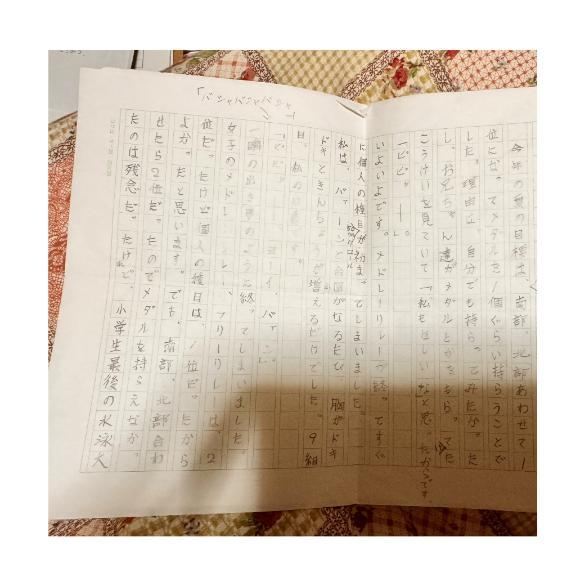 今年の夏の目標は、南部、北部あわせて1
位になってメダルを1個ぐらい持らうことで
した。理由は、自分でも持ってみたかった
し、お兄ちゃん達がメダルとかをもらってた
こうけいを見ていて「私もほしいな」と思ったからです。
「ピピッー。」
いよいよです。メドレーリレーが終ってすぐ
に個人の種目が始まってしまいました。
私は、パァーンと合図がなるたび、胸がドキ
ドキときんちょうが増えるだけでした。9組
目、私の
「バシャバシャバシャ
「ピピッ ヨーイ、パァン。」
一瞬の出き事のように終ってしまいました。
女子のメドレーリレー、フリーリレーは、2
位だ。たけど個人の種目は、1位だ。だから
よかったと思います。でも、南部、北部合わ
せたら2位だったのでメダルを持らえなかっ
たのは残念だ。たけど、小学生最後の水泳大